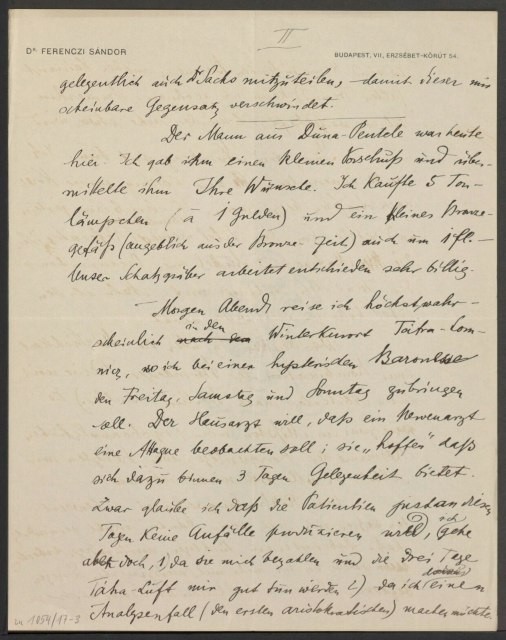 II
Dr. FERENCZI SÁNDOR
BUDAPEST, VII., ERZSÉBET-KÖRÚT 54.
gelegentlich auch Dr Sachs mitzuteilen, damit dieser nur
scheinbare Gegensatz verschwindet.
Der Mann aus Duna-Pentele war heute
hier. Ich gab ihm einen kleinen Vorschuß und über-
mittelte ihm Ihre Wünsche. Ich kaufte 5 Ton-
lämpchen (à 1 Gulden) und ein kleines Bronze-
gefäß (angeblich aus der Bronze-Zeit) auch um 1 fl. —
Unser Schatzgräber arbeitet entschieden sehr billig.
— Morgen Abend reise ich höchstwahr-
scheinlich nach dem in den Winterkurort Tátra-Lom-
nicz, wo ich bei einer hysterischen Baronesse
den Freitag, Samstag und Sonntag zubringen
soll. Der Hausarzt will, daß ein Nervenarzt
eine Attaque beobachten soll; sie „hoffen" daß
sich dazu binnen 3 Tagen Gelegenheit bietet.
Zwar glaube ich daß die Patientin just an diesen
Tagen keine Anfälle produzieren wird, ich gehe
aber doch, 1, da sie mich bezahlen und die drei Tage
Tátra-Luft mir gut tun werden 2) da ich daraus einen
Analysenfall (den ersten aristokratischen) machen möchte.
1054/17-3